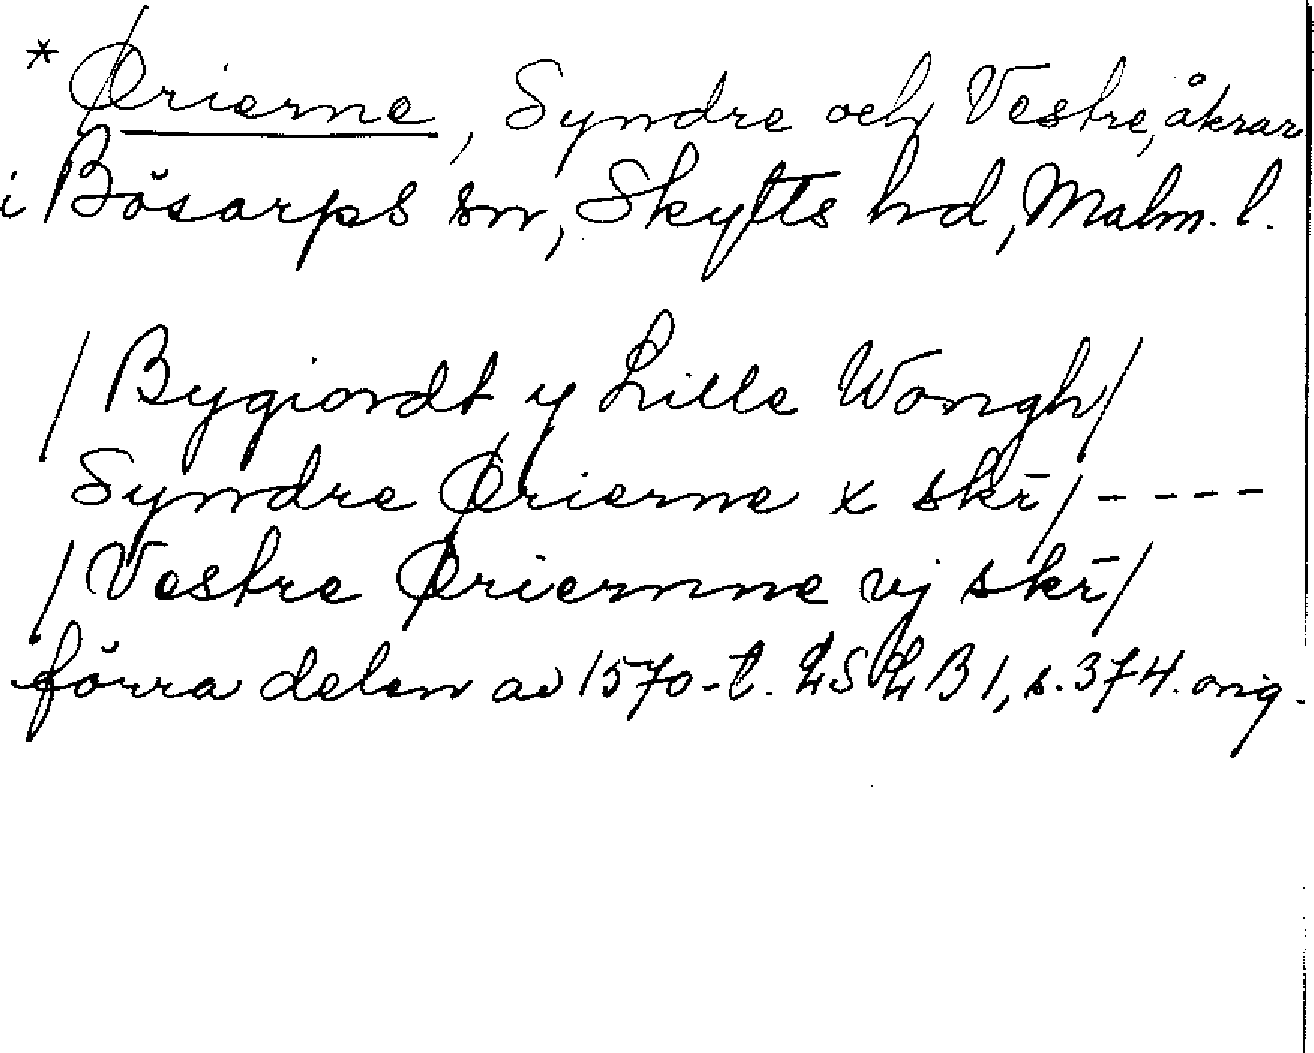 * Ørierne, Syndre och Vestre, åkrar
i Bösarps sn, Skytts hd, Malm. l.
/ Bygiordt y Lille Wongh /
Syndre Ørierne x skr̄ / - - - -
/ Vestre Øriernne vj skr̄ /
förra delen av 1570-t. LSLB 1, s. 374. orig.